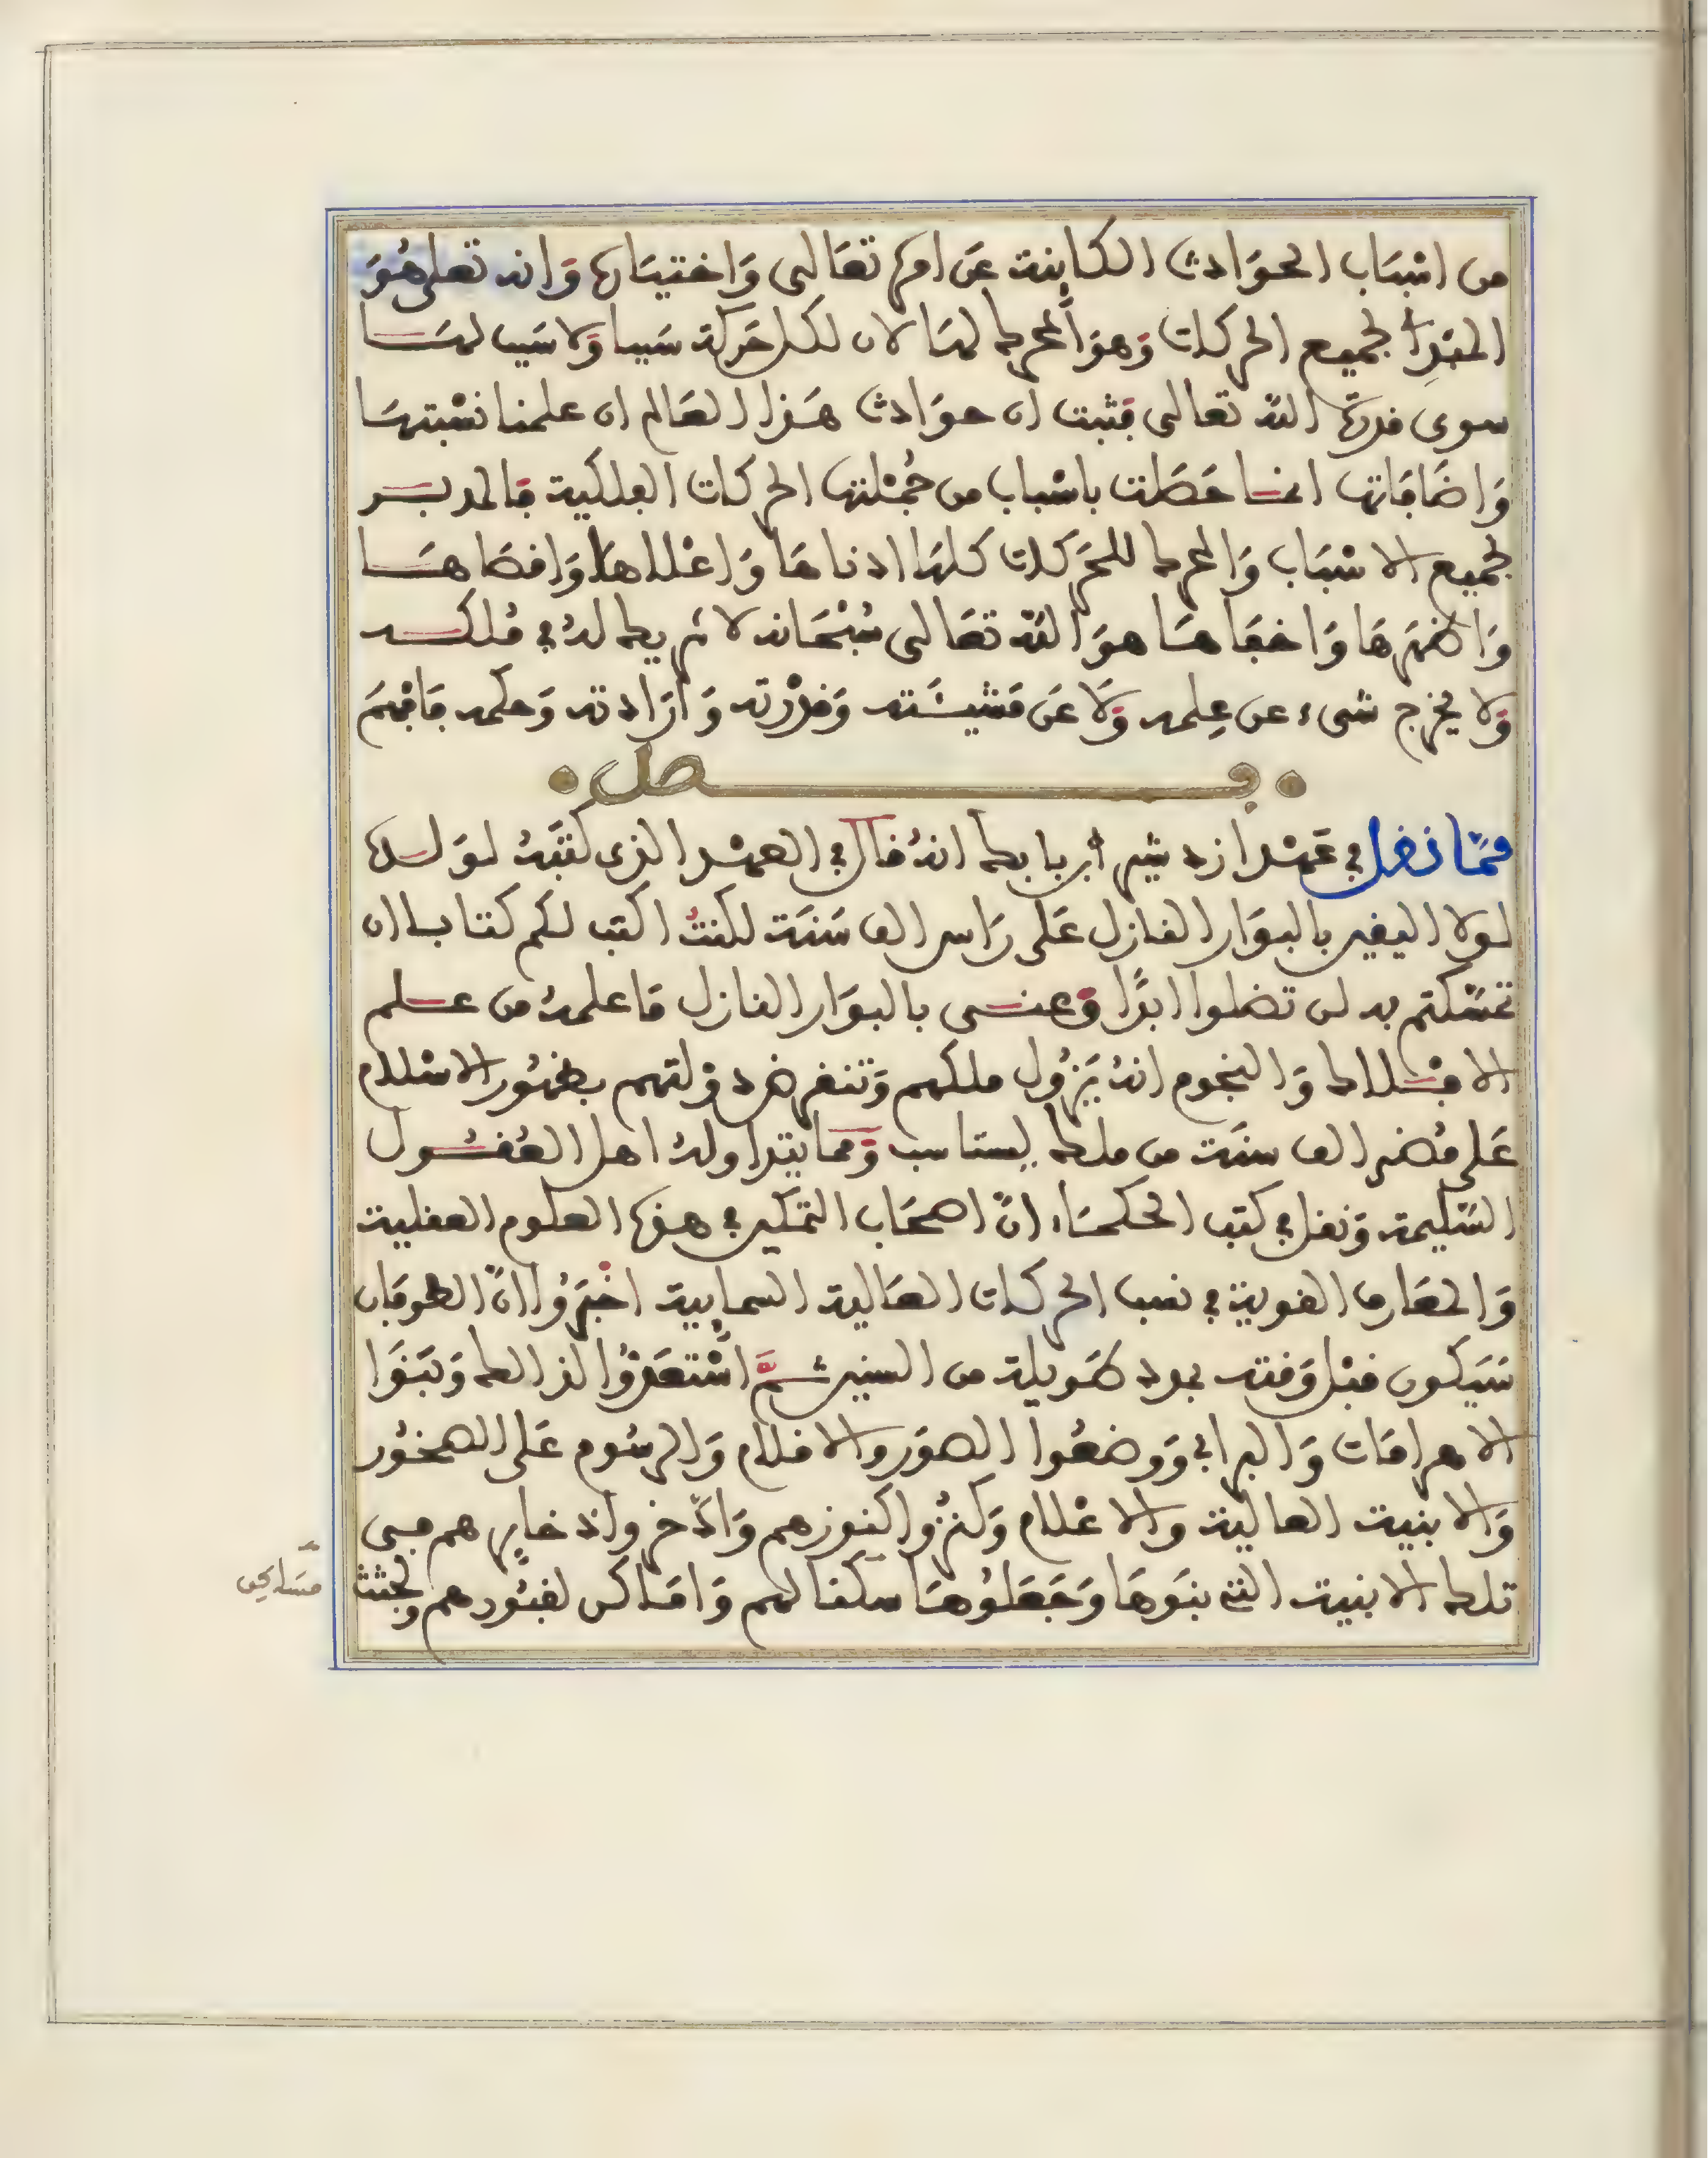 من اسْبَاب الحوَادث الكاينة عَن امره تعَالى وَاختيَاره وَانه تعلى هُوَ
المبْدِأ لجميع الحركات وَهوَ المحرك لهَا لان لكل حَركة سَببا وَلا سَبب لهَا
سوى قدرة اللّه تعالى فثبت ان حوَادث هَذا العَالم ان علمنا نسْبتهَا
وَاضَافَاتها انما حَصَلت باسْباب من جُمْلتها الحركات الفلكية فالمدبر
لجميع الاسْبَاب وَالمحرك للحَركات كلهَا ادناهَا وَاعْلاهَا وَاقصَاهَا
وَاظهرهَا وَاخفَاهَا هوَ اللّه تعَالى سُبْحَانه لا شريك لهُ في مُلكه
وَلا يخرج شىء عن عِلمه وَلَا عَن مَشيئَته وَقدْرته وَارَادته وَحكمه فَافْهَمَ
فصل
ممّا نقل في عَهْد ازدشير ابن بابك انهُ قال في العهْد الذى كتبَهُ لوَلده
لولا اليقين بالبوَار النازل عَلى رَاس الف سَنَة لكنتُ اكتب لكم كتابا ان
تمسَّكتم به لن تضلوا ابدًا وَعنى بالبوَار النازل مَا علمهُ من علم
الافلاك وَالنجوم انهُ يَزُول ملكهم وَتنقرض دوْلتهم بظهُور الاسْلام
عَلى مُضي الف سنَة من ملك يستاسب وَمما يتداولهُ اهل العُقُول
السَّليمة وَنقل في كتب الحكمَاء انّ اصحَاب التمكين في هذه العلوم العقلية
وَالمعَارف القوية في نصب الحركات العَالية السمايية اخْبَرُوا انّ الطوفَان
سَيكون قبْل وَقته بمدد طَويلة من السنين ثمَّ اسْتعَدُّوا لذالك وَبَنَوا
الاهرامَات وَالبرابي وَوضعُوا الصوَر والاقلام وَالرسُوم عَلى الصخُور
وَالابنية العالية والاعْلام وَكنزُوا كنوزهم وَادّخروا ذخايرهم في
تلك الابنية التي بنَوهَا وَجَعَلوُهَا سكنا لهم وَامَاكن لقبُورهم ولجثث